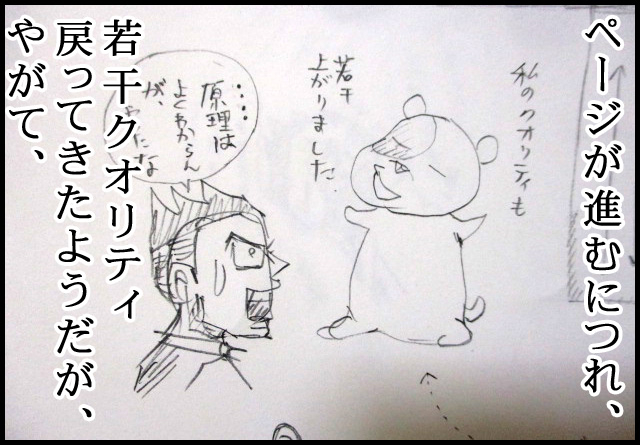 ページが進むにつれ、
私のクオリティも
若干
上がりました
…原理は
よくわからん
が、
やったな
若干クオリティ
戻ってきたようだが、
やがて、